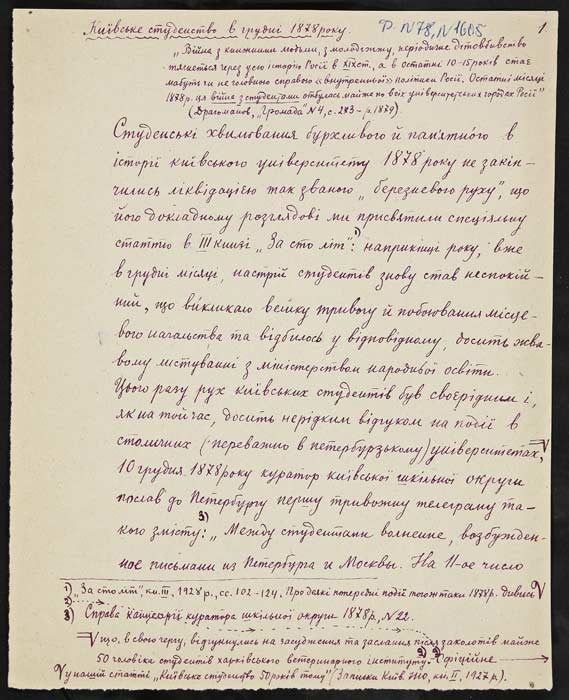 Київське студенство в грудні 1878 року.
Ф. N78, N1605
1.
„Війна з книжними людьми, з молодіжжу, періодичне дітовбивство
тягнеться через усю історію Росії в XIXст., а в останні 10-15 років стає
мабуть чи не головною справою «внутренньої» політики Росії. Остатні місяці
1878р. ця війна з студентами отбулась майже по всіх університецьких городах Росії"
(Драгоманов, „Громада" N4, с. 283 – р. 1879).
Студенські хвилювання бурхливого й пам'ятного в
історії київського університету 1878 року не закін-
чились ліквідацією так званого „березневого руху", що
його докладному розглядові ми присвятили спеціяльну
статтю в III книзі „За сто літ":1) наприкінці року, вже
в грудні місяці, настрій студентів знову став неспокій-
ний, що викликало велику тривогу й побоювання місце-
вого начальства та відбилось у відповідному, досить жва-
вому листуванні з міністерством народньої освіти.
Цього разу рух київських студентів був своєрідним і,
як на той час, досить нерідким відгуком на події в
столичних (переважно в петербурзькому) університетах,
10 грудня 1878 року куратор київської шкільної округи
послав до Петербургу першу тривожну телеграму та-
кого змісту:3) „Между студентами волнение, возбужден-
ное письмами из Петербурга и Москвы. На 11-ое число
1) „За сто літ", кн. III, 1928 р., сс. 102-124. Про деякі попередні події того ж таки 1878р. дивись
2)
3) Справа канцелярії куратора шкільної округи 1878 р., N 22.
що, в свою чергу, відгукнулись на засудження та заслання після заколотів майже
50 чоловіка студентів харківського ветеринарного інституту.2) Офіційне
у нашій статті „Київське студенство 50 років тому" (Записки Київ. ІНО, кн. II, 1927 р.).